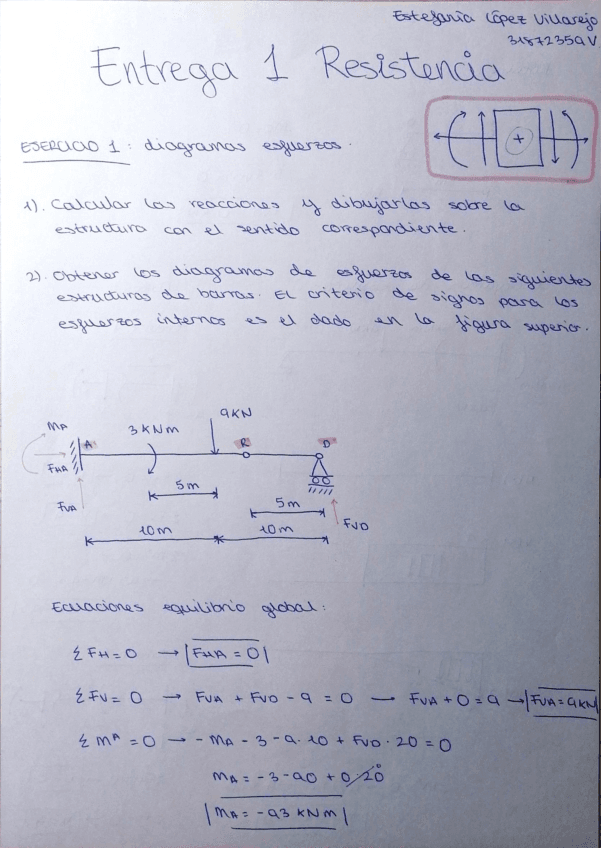 Estefanía López Villarejo
31872359V
Entrega 1 Resistencia
EJERCICIO 1: diagramas esfuerzos.
+
1). Calcular las reacciones y dibujarlas sobre la
estructura con el sentido correspondiente.
2). Obtener los diagramas de esfuerzos de las siguientes
estructuras de barras. El criterio de signos para los
esfuerzos internos es el dado en la figura superior.
MA
3 KNm
9KN
A
R
D
FHA
5m
FVA
5m
FVD
10m
10m
Ecuaciones equilibrio global:
ΣFH=0 → FHA = 0
ΣFV=0 → FVA + FVD - 9 = 0 — FVA+0=9 → FVA=9KN
ΣMA=0 → -MA - 3 - 9·10 + FVD·20 = 0
MA = -3 - 90 + 0·20 0
MA = -93 KNm